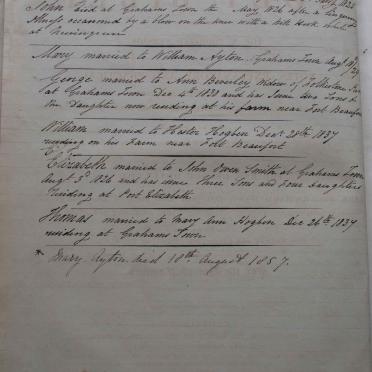 John died at Grahams Town the May 1826 after a lingering
illness occasioned by a blow on the knee with a
at
Mary married to William Ayton Grahams Town Augt
George married to Ann Beverley widow of
at Grahams Town Dec 4th 1830 and has Sons
One Daughter now residing at his farm near Fort Beaufort
William married to Hester Hogben Decr 28th 1837
residing on his Farm near Fort Beaufort
Elizabeth married to John Owen Smith at Grahams Town
Augt 3d 1826 and has issue Three Sons and Four daughters
residing at Port Elizabeth
Thomas married to Mary Ann Hogben Dec 26th 1837
residing at Grahams Town
* Mary Ayton died 18th August 1857.